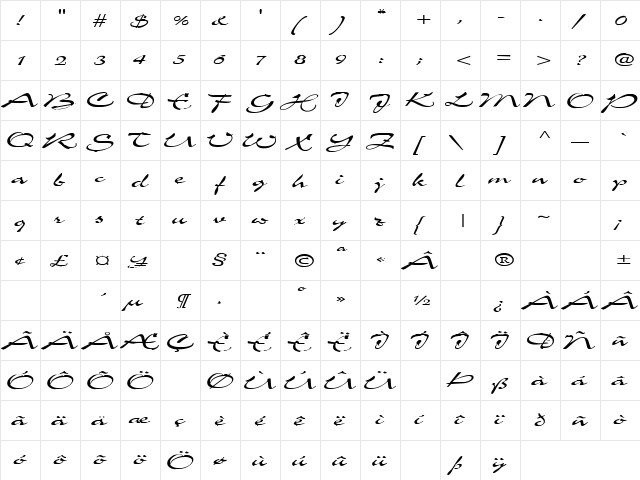 ! " # $ % & ' ( ) * + , - . / 0
1 2 3 4 5 6 7 8 9 : ; < = > ? @
A B C D E F G H I J K L M N O P
Q R S T U V W X Y Z [ \ ] ^ _ `
a b c d e f g h i j k l m n o p
q r s t u v w x y z { | } ~ ¡
¢ £ ¤ ¥ § ¨ © ª « Â ® ±
´ µ ¶ · º » ½ ¿ À Á Â
Ã Ä Å Æ Ç È É Ê Ë Ì Í Î Ï Ð Ñ ã
Ó Ô Õ Ö Ø Ù Ú Û Ü Þ ß à á â
ã ä å æ ç è é ê ë ì í î ï ð ñ ò
ó ô õ ö Ö ø ù ú û ü þ ÿ